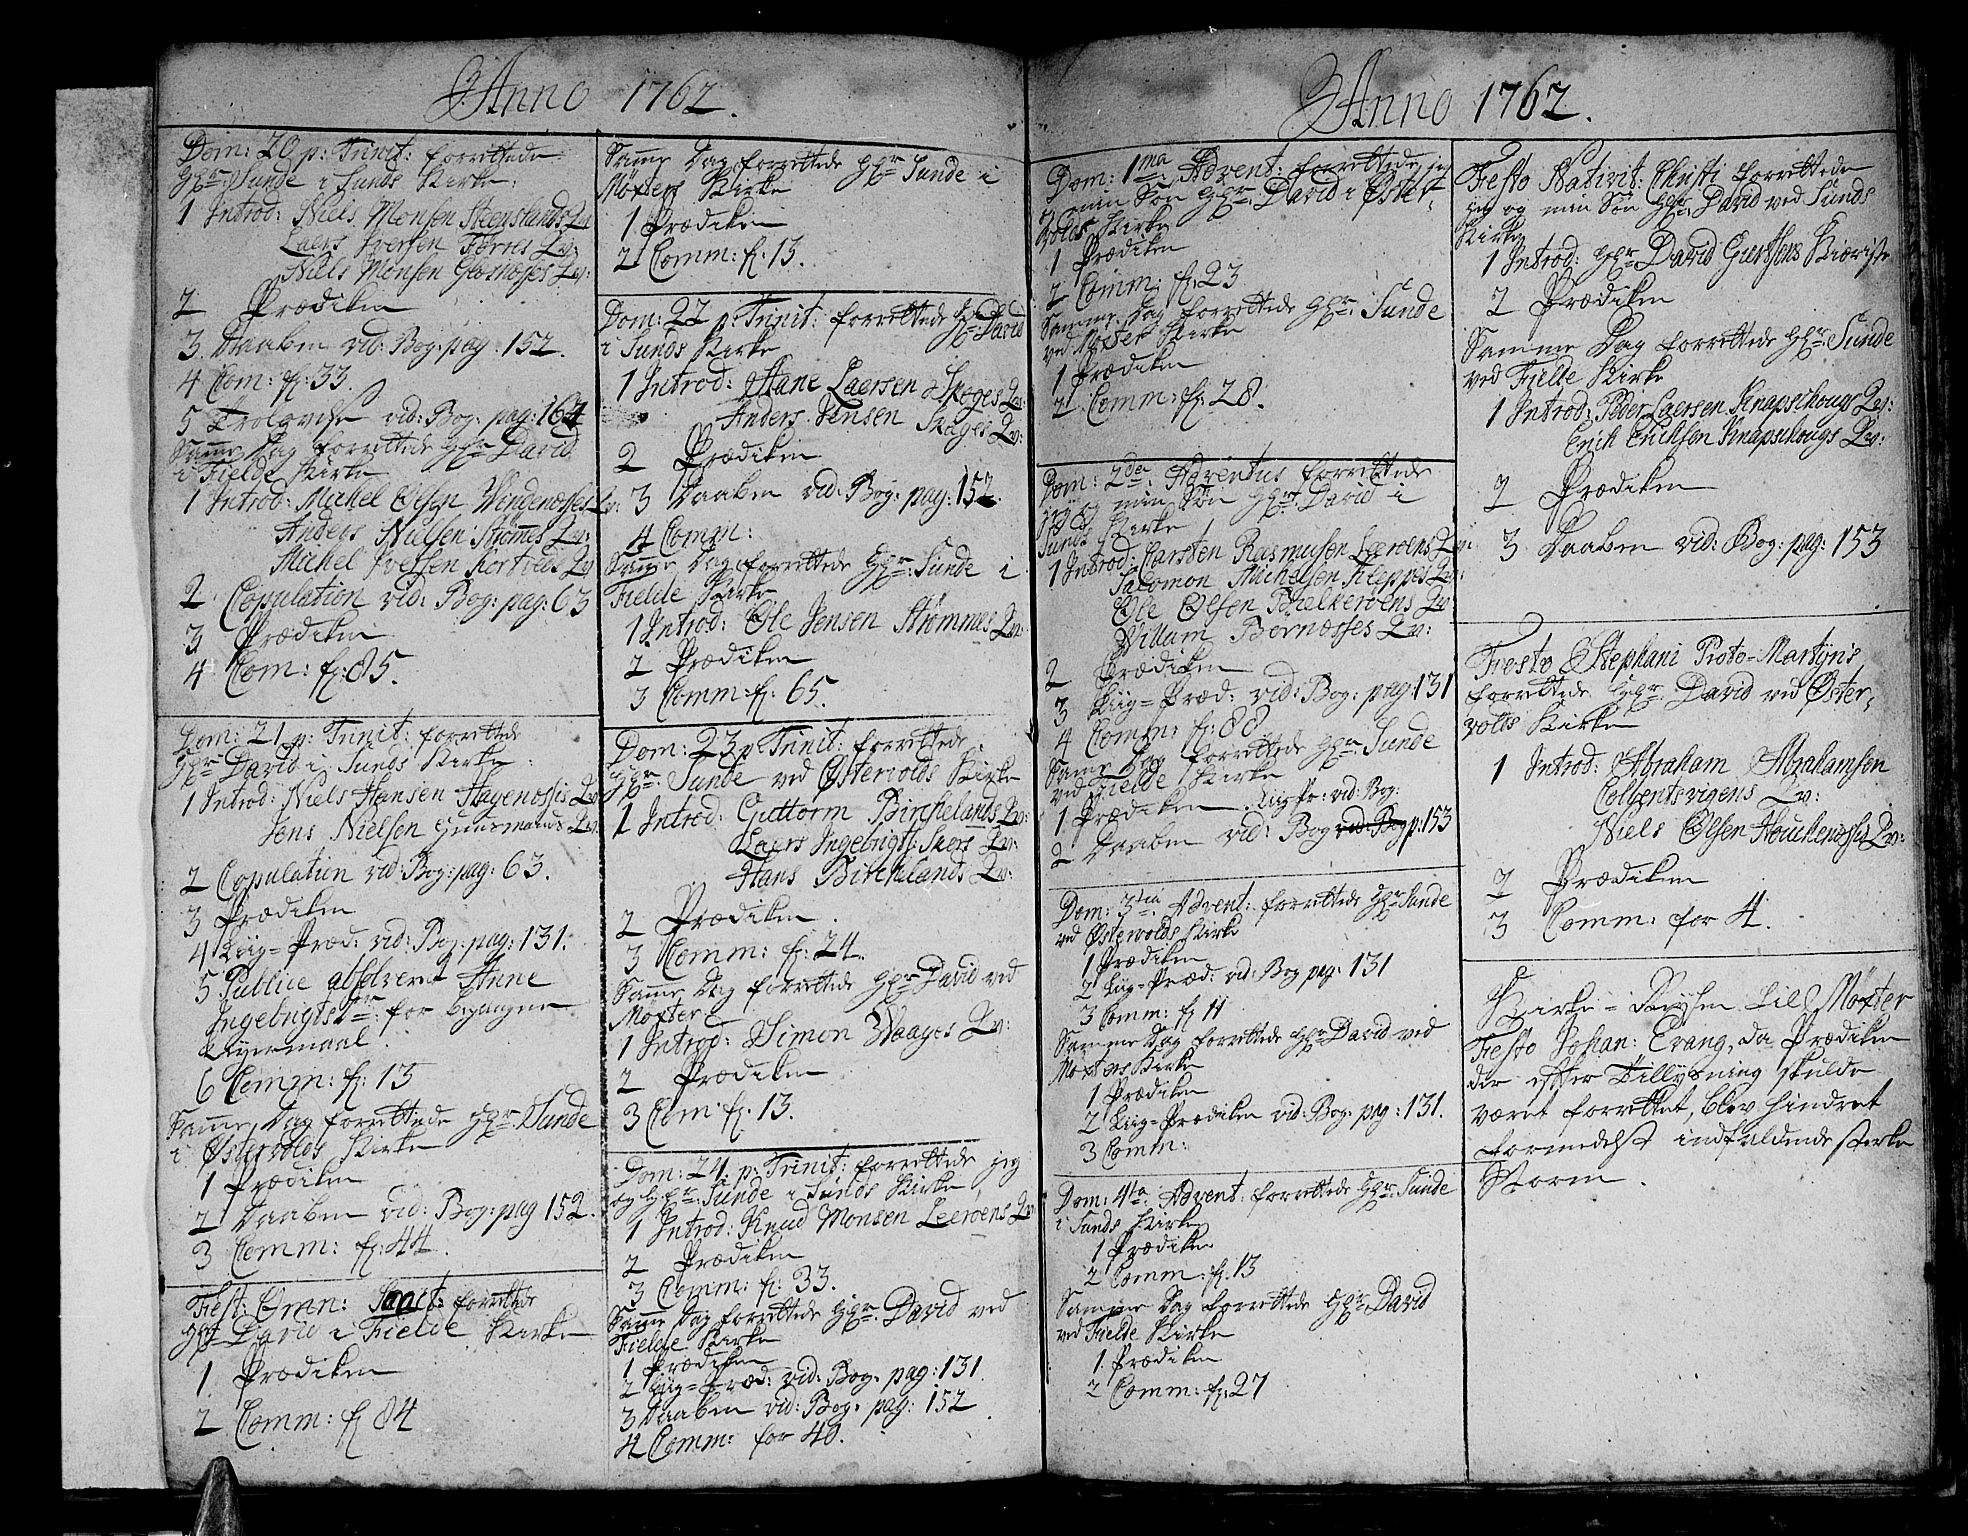 Anno 1762.
Dom: 20 p: Trinit: forrettede
Hr: Sunde i Sunds Kirke:
1 Introd: Niels Monsen Steenslands Qv
Laers Iversen Torres Qv:
Niels Monsen Qv:
2 Prædiken
3 Daaben vid: Bog: pag. 152.
4 Com: f: 33.
5 Trolovelse vid: Bog: pag: 164
Samme Dag forrettede Hr: David
i Fielde Kirke
1 Introd: Michel Olsen Vindenessis Qv:
Anders Nielsen Strømnes Qv:
Michel Iversen Kortveds Qv
2 Copulation vid: Bog: pag: 63
3 Prædiken
4 Com: f: 85.
Dom: 21 p: Trinit: forrettede
Hr: David i Sunds Kirke:
1 Introd: Niels Hansen Hagenessis Qv
Jens Nielsen Qv:
2 Copulation vid: Bog: pag: 63.
3 Prædiken
4 Liig-Præd: vid: Bog: pag: 131.
5 Publice absolveret Anne
Ingebrigts for begangne
Leyermaal.
6 Comm: f: 13
Samme Dag forrettede Hr: Sunde
i Østervolds Kirke
1 Prædiken
2 Daaben vid: Bog: pag 152.
3 Comm: f: 44.
Fest: Omn: Sanct: forrettede
Hr David i Fielde Kirke
1. Prædiken
2 Comm: f 84
Samme Dag forrettede Hr: Sunde i
Møxters Kirke
1 Prædiken
2 Comm: f: 13.
Dom: 22 p: Trinit: forrettede Hr: David
i Sunds Kirke
1 Introd: Hane Laersen Skoges Qv:
Anders Jensen Skoges Qv:
2 Prædiken
3 Daaben vid: Bog: pag: 152.
4 Comm:
Samme Dag forrettede Hr: Sunde i
Fielde Kirke
1 Introd: Ole Jensen Strømnes Qv:
2 Prædiken
3 Comm: f: 65.
Dom: 23 p Trinit: forrettede
Hr: Sunde ved Østervolds Kirke
1 Introd: Guttorm Birchelands Qv:
Laers Ingebrigts: Skers Qv:
Hans Birchelands Qv:
2 Prædiken.
3 Comm: f: 24.
Samme Dag forrettede Hr David ved
Møxter
1 Introd: Simon Waages Qv:
2 Prædiken
3 Com f: 13.
Dom: 24 p: Trinit: forrettede jeg
og Hr: Sunde i Sunds Kirke
1 Introd: Knud Monsen Leeroens Qv
2 Prædiken
3 Comm: f: 33.
Samme Dag forrettede Hr: David ved
Fielde Kirke
1 Prædiken
2 Liig-Præd: vid: Bog: pag: 131
3 Daaben vid: Bog: pag: 152
4 Comm: for 40.
Anno 1762.
Dom: 1ma: Advent: forrettede jeg
og min Søn Hr: David i Øster-
volds Kirke
1 Prædiken
2 Comm: f: 23
Samme Dag forrettede Hr: Sunde
ved Møxter Kirke
1 Prædiken
2 Comm: f: 28.
Dom: 2da: Adventus forrettede
jeg og min Søn Hr: David i
Sunds Kirke
1 Introd: Carsten Rasmusen Leeroens Qv:
Salomon Michelsen Kleppes Qv:
Ole Olsen Bielkeroens Qv
Willum Bernesses Qv:
2 Prædiken
3 Liig-Præd: vid: Bog: pag: 131
4 Comm: f: 88
Samme Dag forrettede Hr: Sunde
ved Fielde Kirke
1. Prædiken. Liig Pr: vid: Bog:
2 Daaben vid: Bog vid: Bog p: 153
Dom: 3tia: Advent: forrettede Hr Sunde
ved Østervolds Kirke
1 Prædiken
2 Liig-Præd: vid: Bog pag: 131
3 Comm: f 11
Samme Dag forrettede Hr: David ved
Møxters Kirke
1 Prædiken
2 Liig-Prædiken vid: Bog: pag: 131.
3 Comm:
Dom: 4ta: Advent: forrettede Hr: Sunde
i Sunds Kirke
1 Prædiken
2 Comm: f: 13
Samme Dag forrettede Hr David
ved Fielde Kirke
1. Prædiken
2 Comm: f: 27
Festo Nativit: Christi forrettede
jeg og min Søn Hr: David ved Sunds
Kirke
1 Introd: Hr David
2 Prædiken
Samme Dag forrettede Hr Sunde
ved Fielde Kirke
1 Introd: Peder Laersen Knapschougs Qv:
Erich Erichsen Knapschougs Qv:
2 Prædiken
3 Daaben vid: Bog: pag: 153
Festo Stephani Proto-Martyris
forrettede Hr: David ved Øster-
volds Kirke
1 Introd: Abraham Abrahamsen
Qv:
Niels Olsen Qv:
2 Prædiken
3 Comm: for 4.
Kirke-Reysen til Møxter
Festo Johan: Evang, da Prædiken
der efter Tillysning skulde
været forrettet, blev hindret
formedelst indfaldende sterke
Storm.